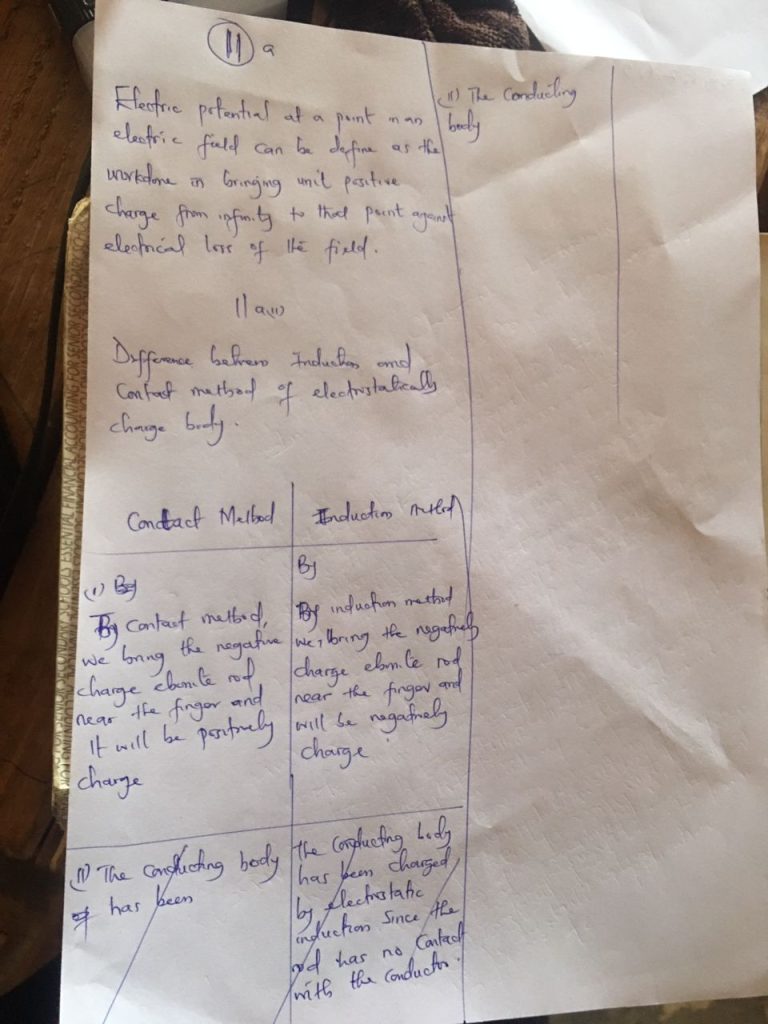 11 a
Electric potential at a point in an
electric field can be define as the
workdone in bringing unit positive
charge from infinity to that point against
electrical loss of the field.
11 a(ii)
Difference between Induction and
Contact method of electrostatically
charge body.
Contact Method
(i) By
By Contact method,
we bring the negative
charge ebonite rod
near the finger and
it will be positively
charge
(ii) The conducting body
has been
Induction method
By
By induction method
we, bring the negatively
charge ebonite rod
near the finger and
will be negatively
charge
The conducting body
has been charged
by electrostatic
induction since the
rod has no contact
with the conductor.
(ii) The Conducting
body
ESSENTIAL FINANCIAL ACCOUNTING FOR SENIOR SECONDARY